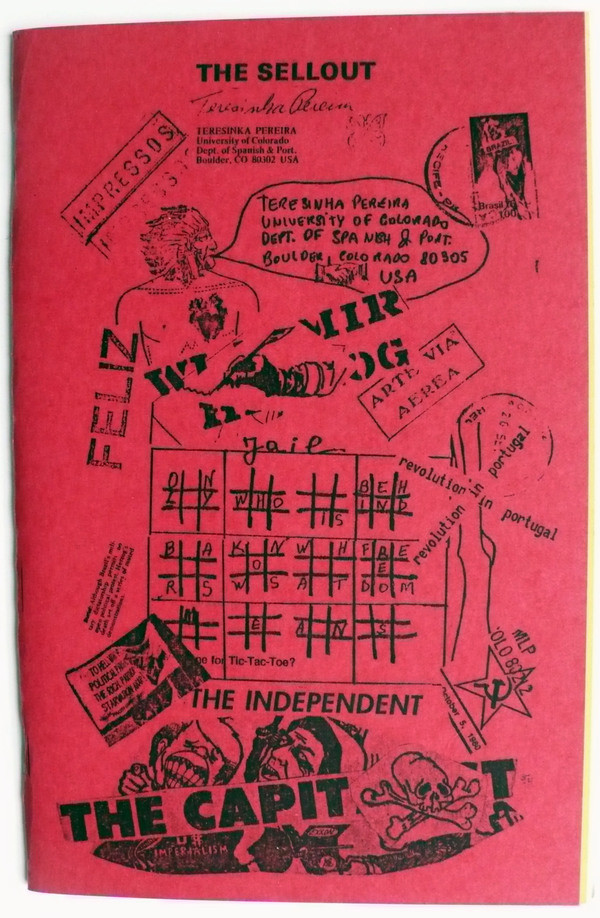 THE SELLOUT
Teresinha Pereira
TERESINKA PEREIRA
University of Colorado
Dept. of Spanish & Port.
Boulder, CO 80302 USA
IMPRESSOS
BRAZIL
Brasil 76
1,00
RECIFE
TERESINHA PEREIRA
UNIVERSITY OF COLORADO
DEPT. OF SPANISH & PORT.
BOULDER, COLORADO 80305
USA
FELIZ
MIR
OG
ARTE VIA
AEREA
Jail
O N
L Y
W H O
I S
B E H
I N D
B A
R S
K N
O
W S
W H
A T
F R E
E
D O M
M
E
A N
S
me for Tic-Tac-Toe?
revolution in portugal
revolution in portugal
TO HELL WITH
POLITICAL
THE RICH
STARVATION
MLP
OLO 80212
October 5, 1980
THE INDEPENDENT
THE CAPIT
ST
US
IMPERIALISM